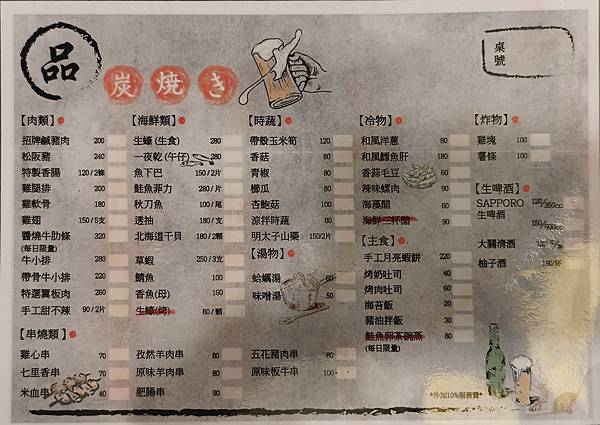 品
炭焼き
桌號
【肉類】
招牌鹹豬肉 200
松阪豬 240
特製香腸 120/2條
雞腿排 200
雞軟骨 180
雞翅 150/5支
醬燒牛肋條 320
(每日限量)
牛小排 280
帶骨牛小排 220
特選翼板肉 260
手工甜不辣 90/2片
【海鮮類】
生蠔(生食) 280
一夜乾(午仔) 280
魚下巴 150/2片
鮭魚菲力 280/片
秋刀魚 100/尾
透抽 180/支
北海道干貝 180/2顆
草蝦 250/3支
鯖魚 100
香魚(母) 160
生蠔(烤) 80/顆
【時蔬】
帶殼玉米筍 120
香菇 80
青椒 80
櫛瓜 80
杏鮑菇 80
涼拌時蔬 80
明太子山藥 150/2片
【湯物】
蛤蠣湯 60
味噌湯 50
【冷物】
和風洋蔥 80
和風鱈魚肝 180
香蒜毛豆 60
辣味螺肉 90
海藻醋 80
海鮮三杯醋
【主食】
手工月亮蝦餅 220
烤奶吐司 40
烤肉吐司 60
海苔飯 30
豬油拌飯 30
鮭魚卵茶碗蒸 80
(每日限量)
【炸物】
雞塊 100
薯條 100
【生啤酒】
SAPPORO
生啤酒
120/350cc
150/500cc
大關清酒
柚子酒
【串燒類】
雞心串 70
七里香串 70
米血串 40
孜然羊肉串 80
原味羊肉串 80
肥腸串 90
五花豬肉串 80
原味板牛串 100
*外加10%服務費*